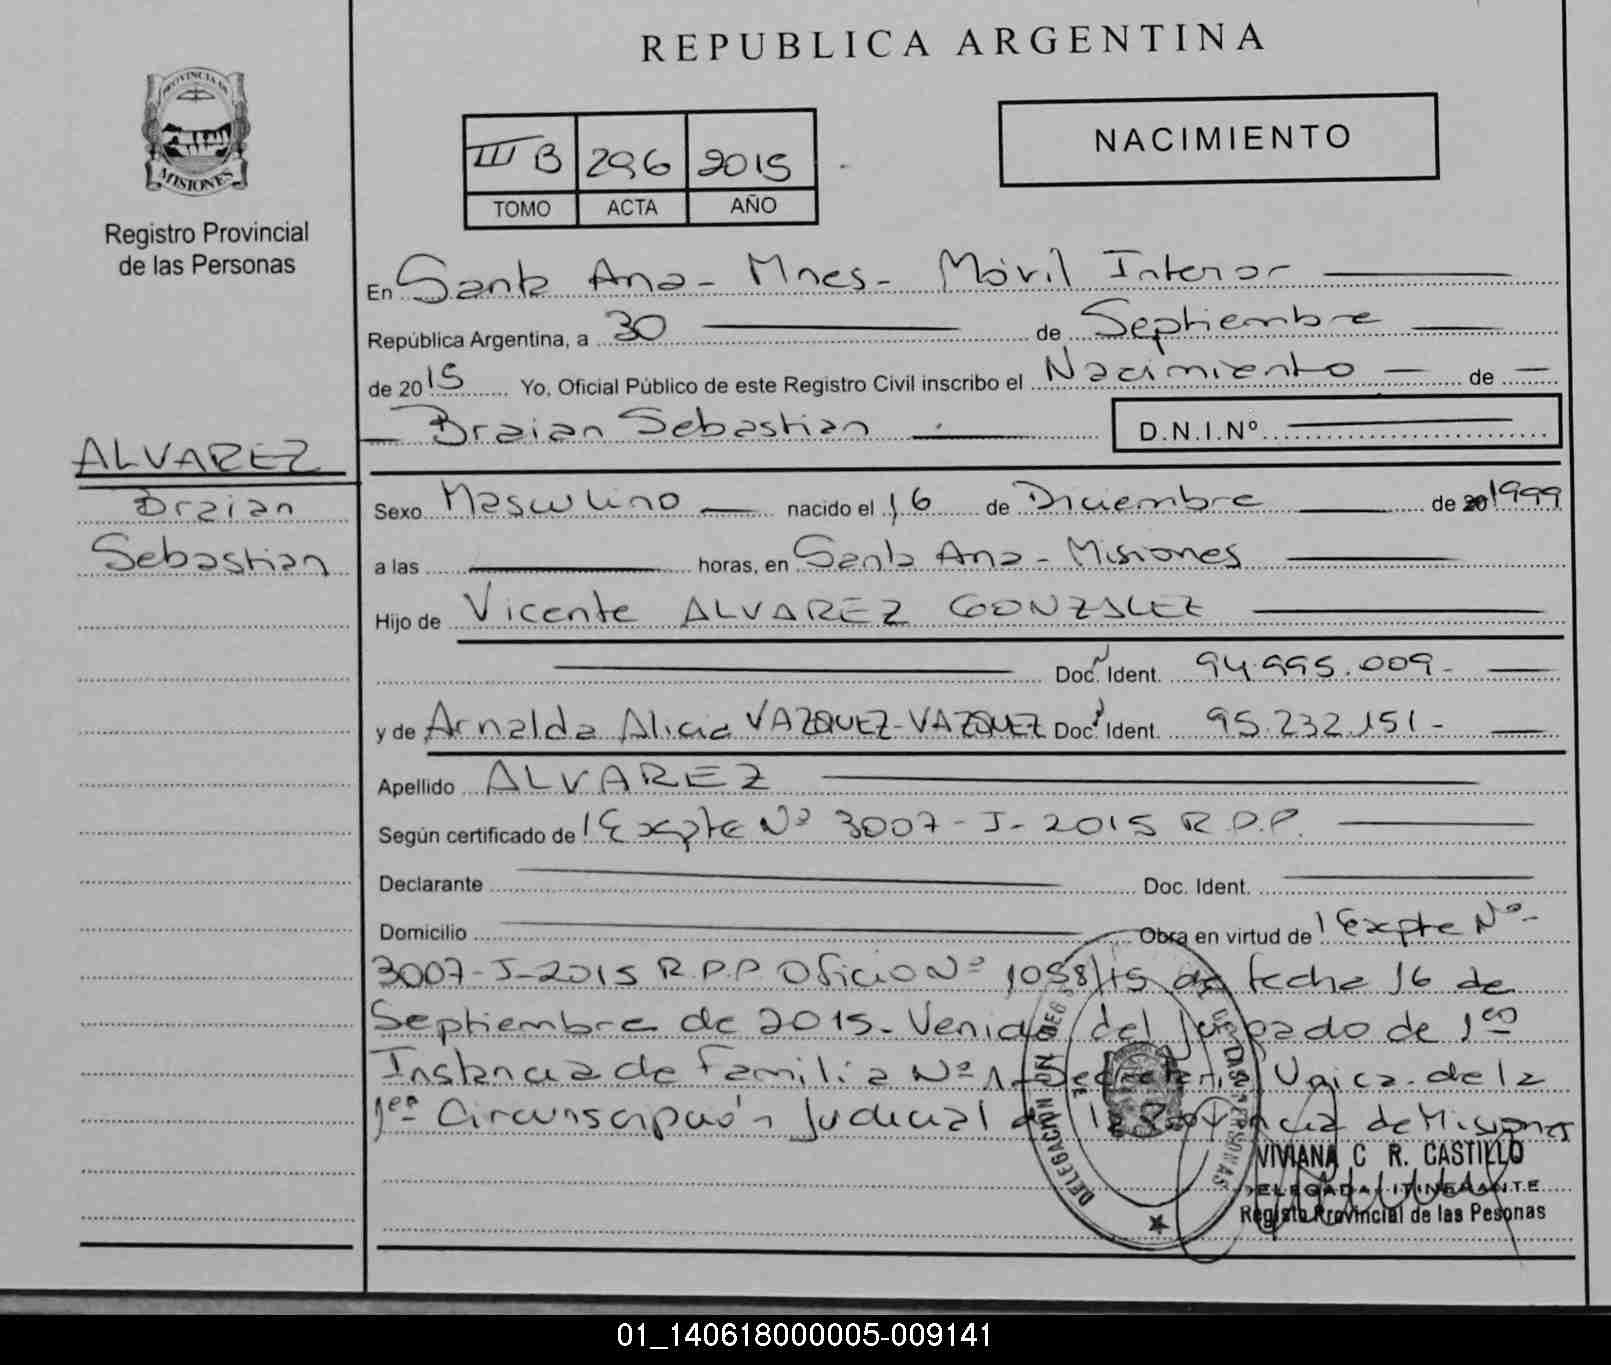 REPUBLICA ARGENTINA
PROVINCIA DE
MISIONES
Registro Provincial
de las Personas
III B 296 2015
TOMO ACTA AÑO
NACIMIENTO
En Santa Ana - Mnes - Móvil Interior
República Argentina, a 30 de Septiembre
de 2015 Yo, Oficial Público de este Registro Civil inscribo el Nacimiento de
Braian Sebastian D.N.I.Nº
ALVAREZ
Braian
Sebastian
Sexo Masculino nacido el 16 de Diciembre de 1999
a las horas, en Santa Ana - Misiones
Hijo de Vicente ALVAREZ GONZALEZ
Doc. Ident. 94.995.009-
y de Arnalda Alicia VAZQUEZ-VAZQUEZ Doc. Ident. 95.232.151-
Apellido ALVAREZ
Según certificado de Expte Nº 3007-J-2015 R.P.P.
Declarante Doc. Ident.
Domicilio Obra en virtud de Expte Nº-
3007-J-2015 R.P.P Oficio Nº 1058/15 de fecha 16 de
Septiembre de 2015- Venido del Juzgado de 1era
Instancia de Familia Nº 1- Secretaria Unica de la
1era Circunscripción Judicial de la Provincia de Misiones
VIVIANA C R. CASTILLO
DELEGADA ITINERANTE
Registo Provincial de las Pesonas
01_140618000005-009141